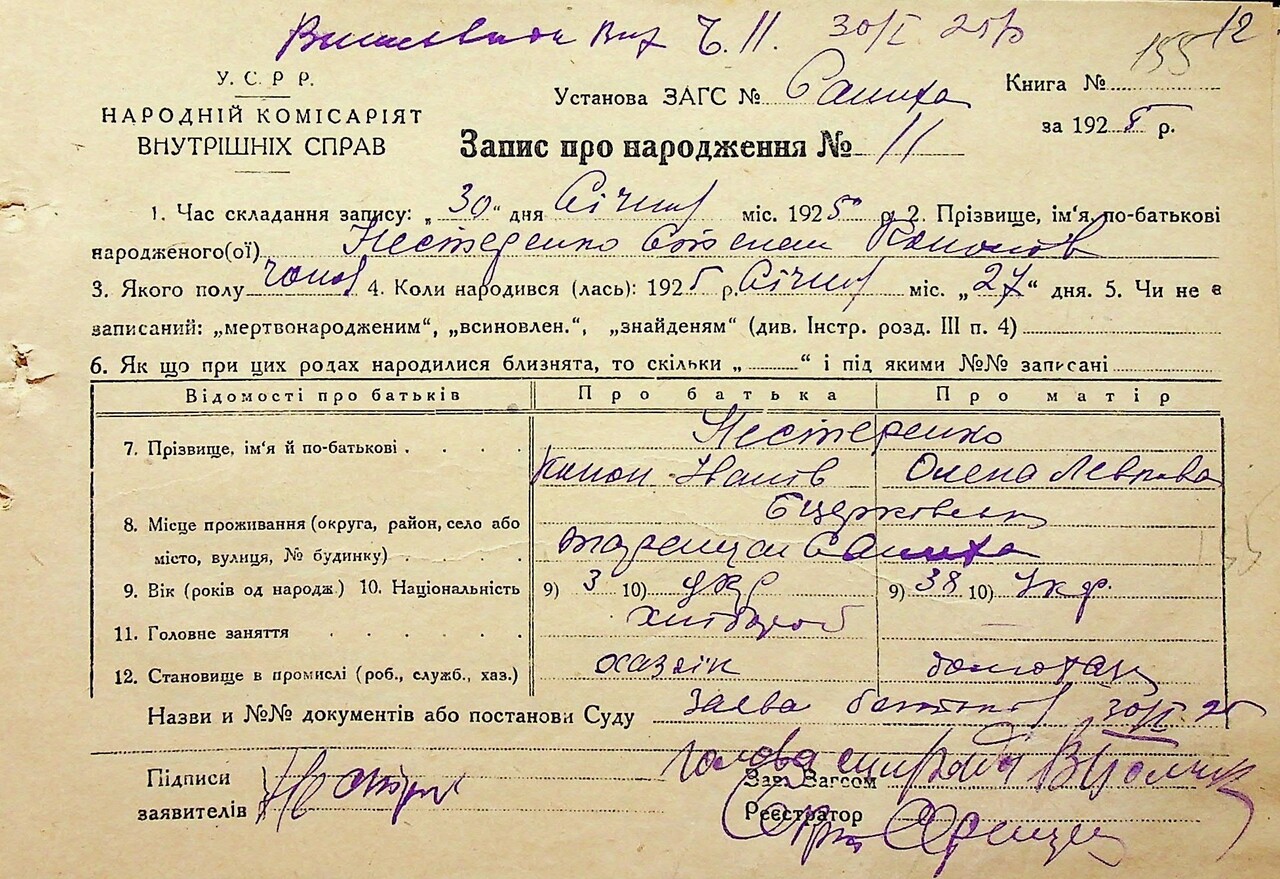 Ч. 11. 30/I 25 р
155 12
У. С. Р. Р.
НАРОДНІЙ КОМІСАРІЯТ
ВНУТРІШНІХ СПРАВ
Установа ЗАГС № Салиха
Книга №
за 1925 р.
Запис про народження № 11
1. Час складання запису: „30" дня Січня міс. 1925 р 2. Прізвище, ім'я, по-батькові
народженого(ої) Нестеренко Степан Кононів
3. Якого полу чолов 4. Коли народився (лась): 1925 р. Січня міс. „27" дня. 5. Чи не є
записаний: „мертвонародженим", „всиновлен.", „знайденям" (див. Інстр. розд. III п. 4)
6. Як що при цих родах народилися близнята, то скільки „ " і під якими №№ записані
Відомості про батьків Про батька Про матір
7. Прізвище, ім'я й по-батькові Нестеренко
Конон Олена
8. Місце проживання (округа, район, село або Бцерковська
місто, вулиця, № будинку) Таращан Салиха
9. Вік (років од народж.) 10. Національність 9) 3 10) укр 9) 38 10) Укр.
11. Головне заняття хлібороб
12. Становище в промислі (роб., служб., хаз.) хазяїн
Назви и №№ документів або постанови Суду Заява батьков 30/I 25
Підписи
заявителів
Голова сільради
Зав. Загсом
Реєстратор